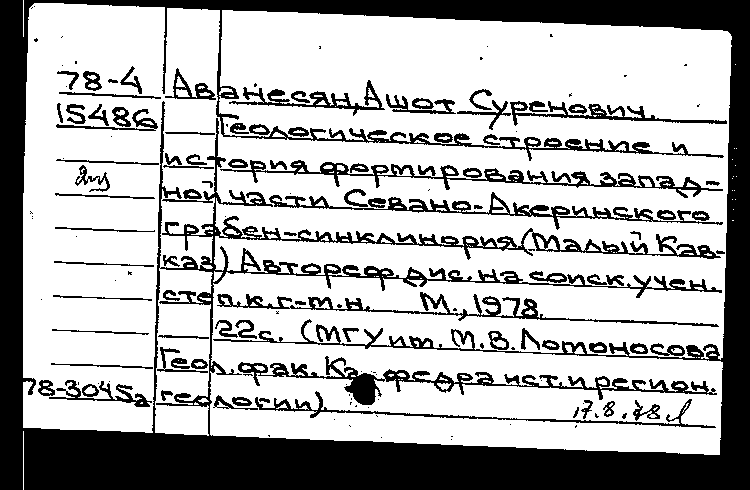 78-4 Аванесян, Ашот Суренович.
15486 Геологическое строение и
история формирования запад-
ной части Севано-Акеринского
грабен-синклинория (Малый Кав-
каз). Автореф. дис. на соиск. учен.
степ. к. г.-м. н. М., 1978.
22с. (МГУ им. М. В. Ломоносова
Геол. фак. Кафедра ист. и регион.
78-3045а геологии).
17.8.78